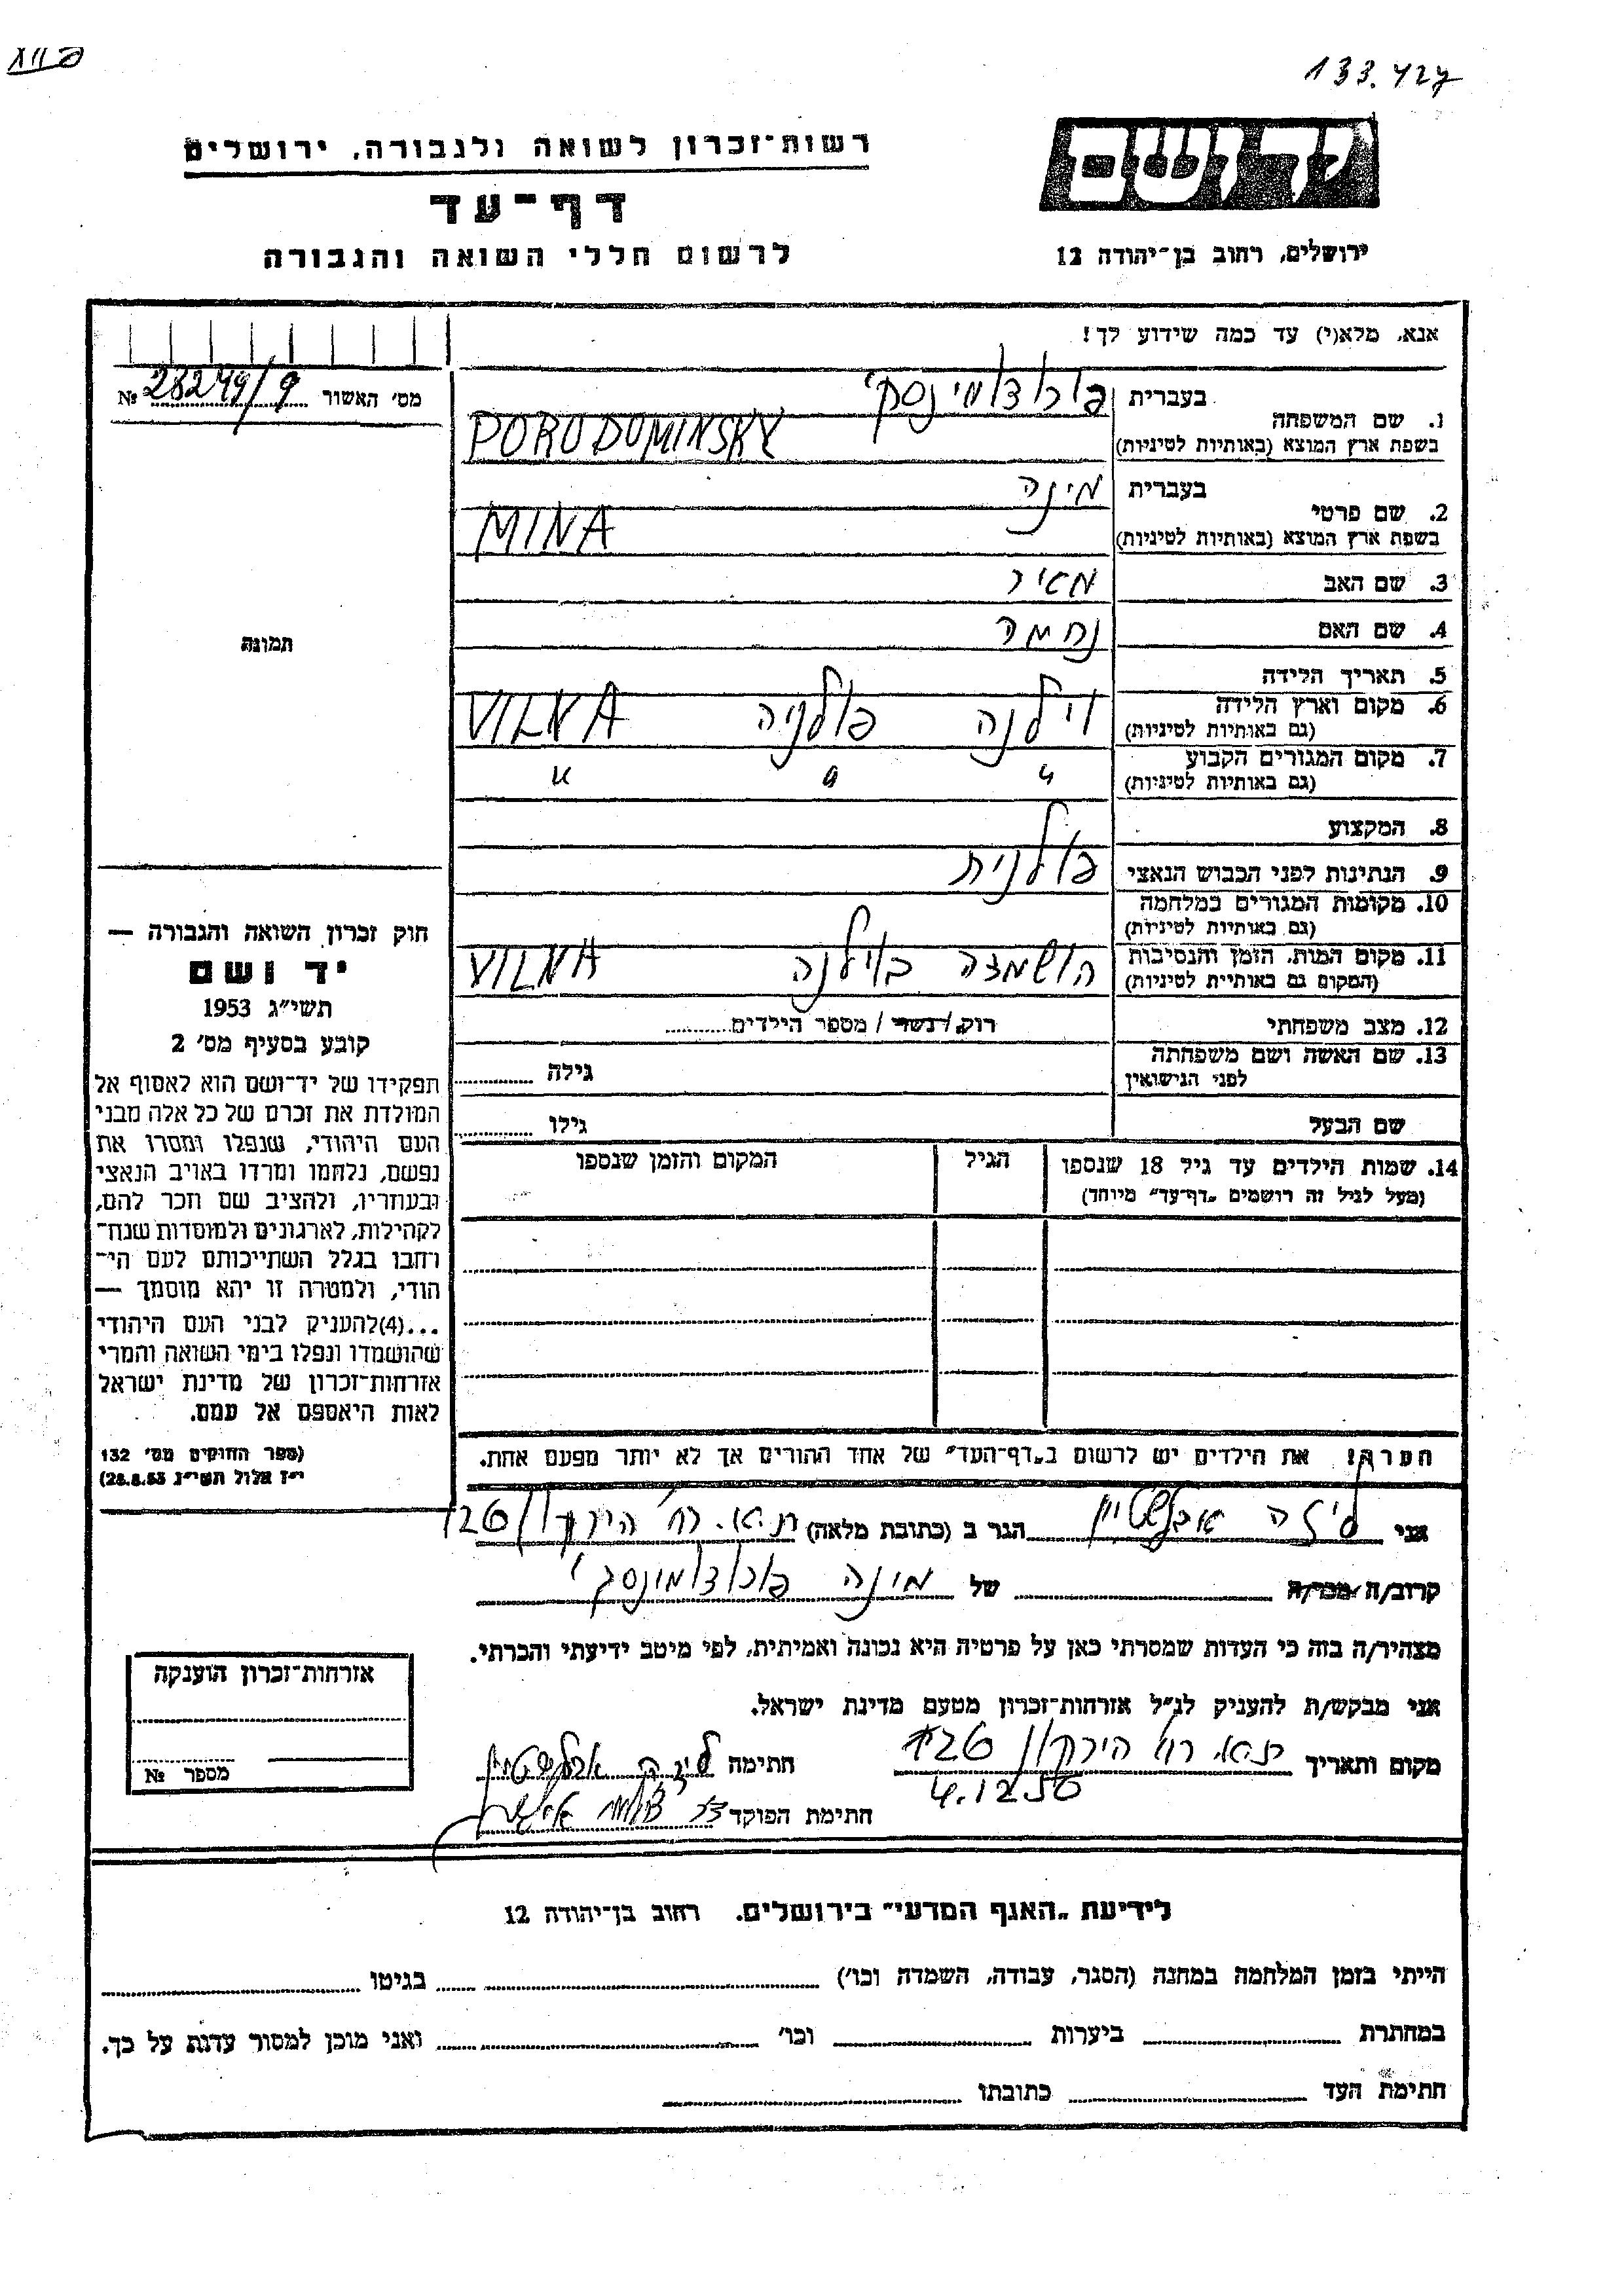 133.427
רשות־זכרון לשואה ולגבורה, ירושלים
דף־עד
לרשום חללי השואה והגבורה
יד ושם
ירושלים, רחוב בן־יהודה 12
אנא, מלא(י) עד כמה שידוע לך!
מס' האשור 28249/9 №
1. שם המשפחה
בעברית פורודומינסקי
בשפת ארץ המוצא (באותיות לטיניות) PORODOMINSKY
2. שם פרטי
בעברית מינה
בשפת ארץ המוצא (באותיות לטיניות) MINA
3. שם האב מאיר
4. שם האם נחמה
תמונה
5. תאריך הלידה
6. מקום וארץ הלידה וילנה פולניה VILNA
(גם באותיות לטיניות)
7. מקום המגורים הקבוע " " "
(גם באותיות לטיניות)
8. המקצוע
9. הנתינות לפני הכבוש הנאצי פולנית
10. מקומות המגורים במלחמה
(גם באותיות לטיניות)
11. מקום המות, הזמן והנסיבות הושמדה בוילנה VILNA
(המקום גם באותיית לטיניות)
12. מצב משפחתי רוק/נשוי/ מספר הילדים
13. שם האשה ושם משפחתה
לפני הנישואין גילה
שם הבעל גילו
14. שמות הילדים עד גיל 18 שנספו הגיל המקום והזמן שנספו
(מעל לגיל זה רושמים „דף־עד" מיוחד)
חוק זכרון השואה והגבורה —
יד ושם
תשי"ג 1953
קובע בסעיף מס' 2
תפקידו של יד־ושם הוא לאסוף אל
המולדת את זכרם של כל אלה מבני
העם היהודי, שנפלו ומסרו את
נפשם, נלחמו ומרדו באויב הנאצי
ובעוזריו, ולהציב שם וזכר להם,
לקהילות, לארגונים ולמוסדות שנח־
רחבו בגלל השתייכותם לעם הי־
הודי, ולמטרה זו יהא מוסמך —
...(4)להעניק לבני העם היהודי
שהושמדו ונפלו בימי השואה והמרי
אזרחות־זכרון של מדינת ישראל
לאות היאספם אל עמם.
(ספר החוקים מס' 132
י"ז אלול תשי"ג 28.8.53)
הערה! את הילדים יש לרשום ב„דף־העד" של אחד ההורים אך לא יותר מפעם אחת.
אני ליזה הגר ב (כתובת מלאה) ת.א. רח' הירקון 126
קרוב/ה מכר/ה של מינה פורודומינסקי
מצהיר/ה בזה כי העדות שמסרתי כאן על פרטיה היא נכונה ואמיתית, לפי מיטב ידיעתי והכרתי.
אני מבקש/ת להעניק לנ"ל אזרחות־זכרון מטעם מדינת ישראל.
מקום ותאריך ת.א. רח' הירקון 126 חתימה
4.12.56
חתימת הפוקד
אזרחות־זכרון הוענקה
מספר №
לידיעת „האגף המדעי" בירושלים. רחוב בן־יהודה 12
הייתי בזמן המלחמה במחנה (הסגר, עבודה, השמדה וכו') בגיטו
במחתרת ביערות וכו' ואני מוכן למסור עדות על כך.
חתימת העד כתובתו